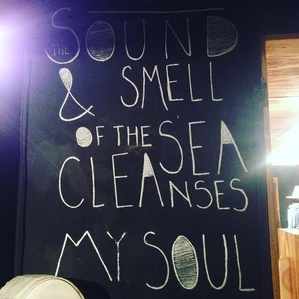 THE SOUND
& SMELL
OF THE SEA
CLEANSES
MY SOUL